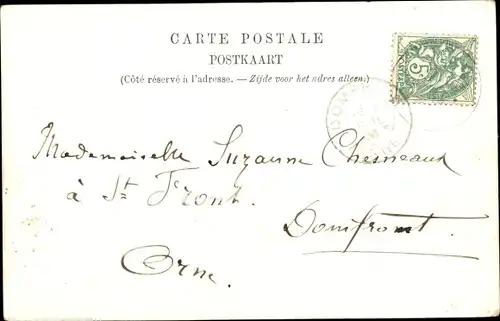 CARTE POSTALE
POSTKAART
(Côté réservé à l'adresse. — Zijde voor het adres alleen.)
5
Mademoiselle Suzanne Chesneaux
à St Front.
Domfront.
Orne.